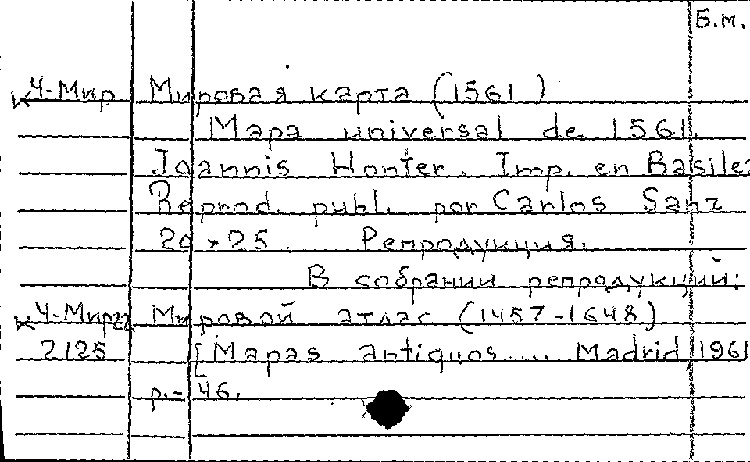 Б.м.
Ч-Мир Мировая карта (1561)
Mapa universal de 1561.
Joannis Honter. Imp. en Basilea
Reprod. publ. por Carlos Sanz
20 × 25 Репродукция.
В собрании репродукций:
Ч-Мир Мировой атлас (1457-1648)
2125 [Mapas antiguos.... Madrid, 1961
р.- 46.